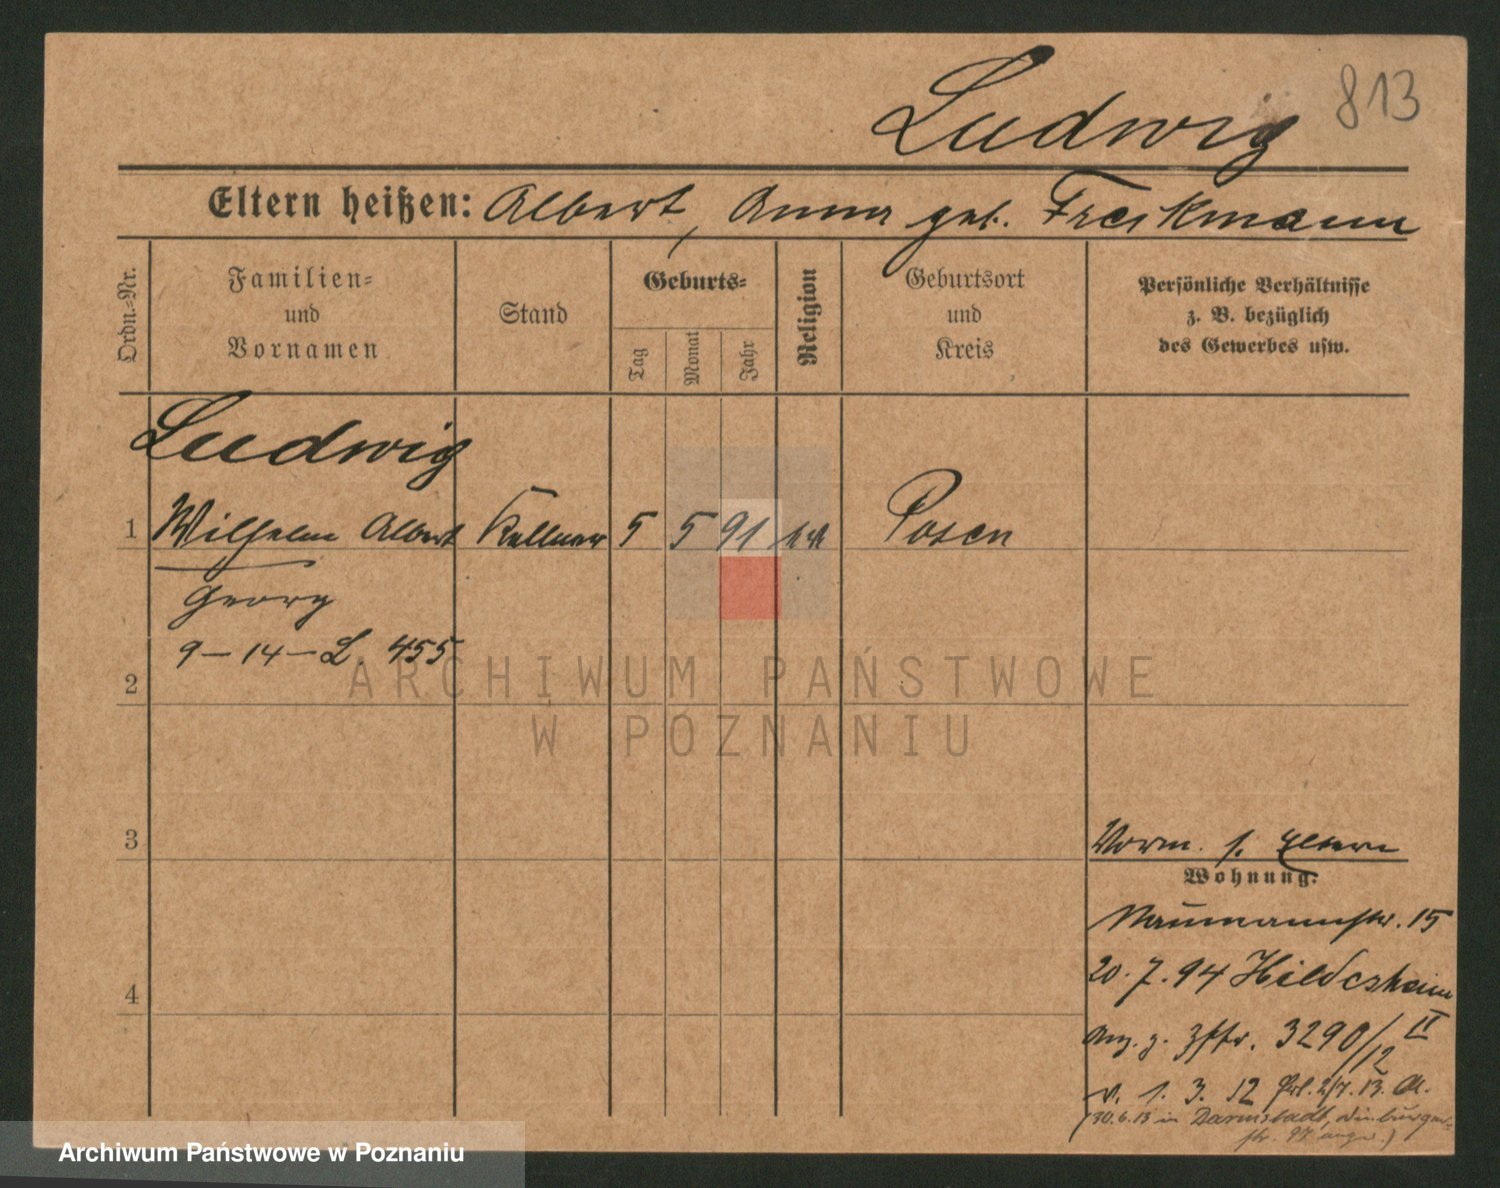 Ludwig 813
Eltern heißen: Albert, Anna geb. Freckmann
Ordn.-Nr.
Familien-
und
Vornamen
Stand
Geburts-
Tag
Monat
Jahr
Religion
Geburtsort
und
Kreis
Persönliche Verhältnisse
z. B. bezüglich
des Gewerbes usw.
Ludwig
1 Wilhelm Albert Kellner 5 5 91 Posen
Georg
9-14-L. 455
2
3
4
Vorm. s. Eltern
Wohnung:
Naumannstr. 15
20. 7. 94 Hildesheim
Anz. z. 3290/12 II
v. 1. 3. 12 2/7. 13. A.
(30.6.13 in Darmstadt,
str. 97 angem.)
ARCHIWUM PAŃSTWOWE
W POZNANIU
Archiwum Państwowe w Poznaniu